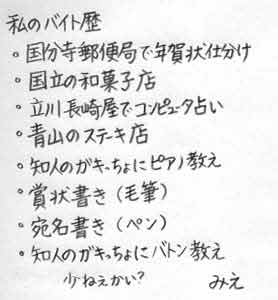 私のバイト歴
・国分寺郵便局で年賀状仕分け
・国立の和菓子店
・立川長崎屋でコンピュータ占い
・青山のステーキ店
・知人のガキっちょにピアノ教え
・賞状書き(毛筆)
・宛名書き(ペン)
・知人のガキっちょにバトン教え
少ねえかい? みえ